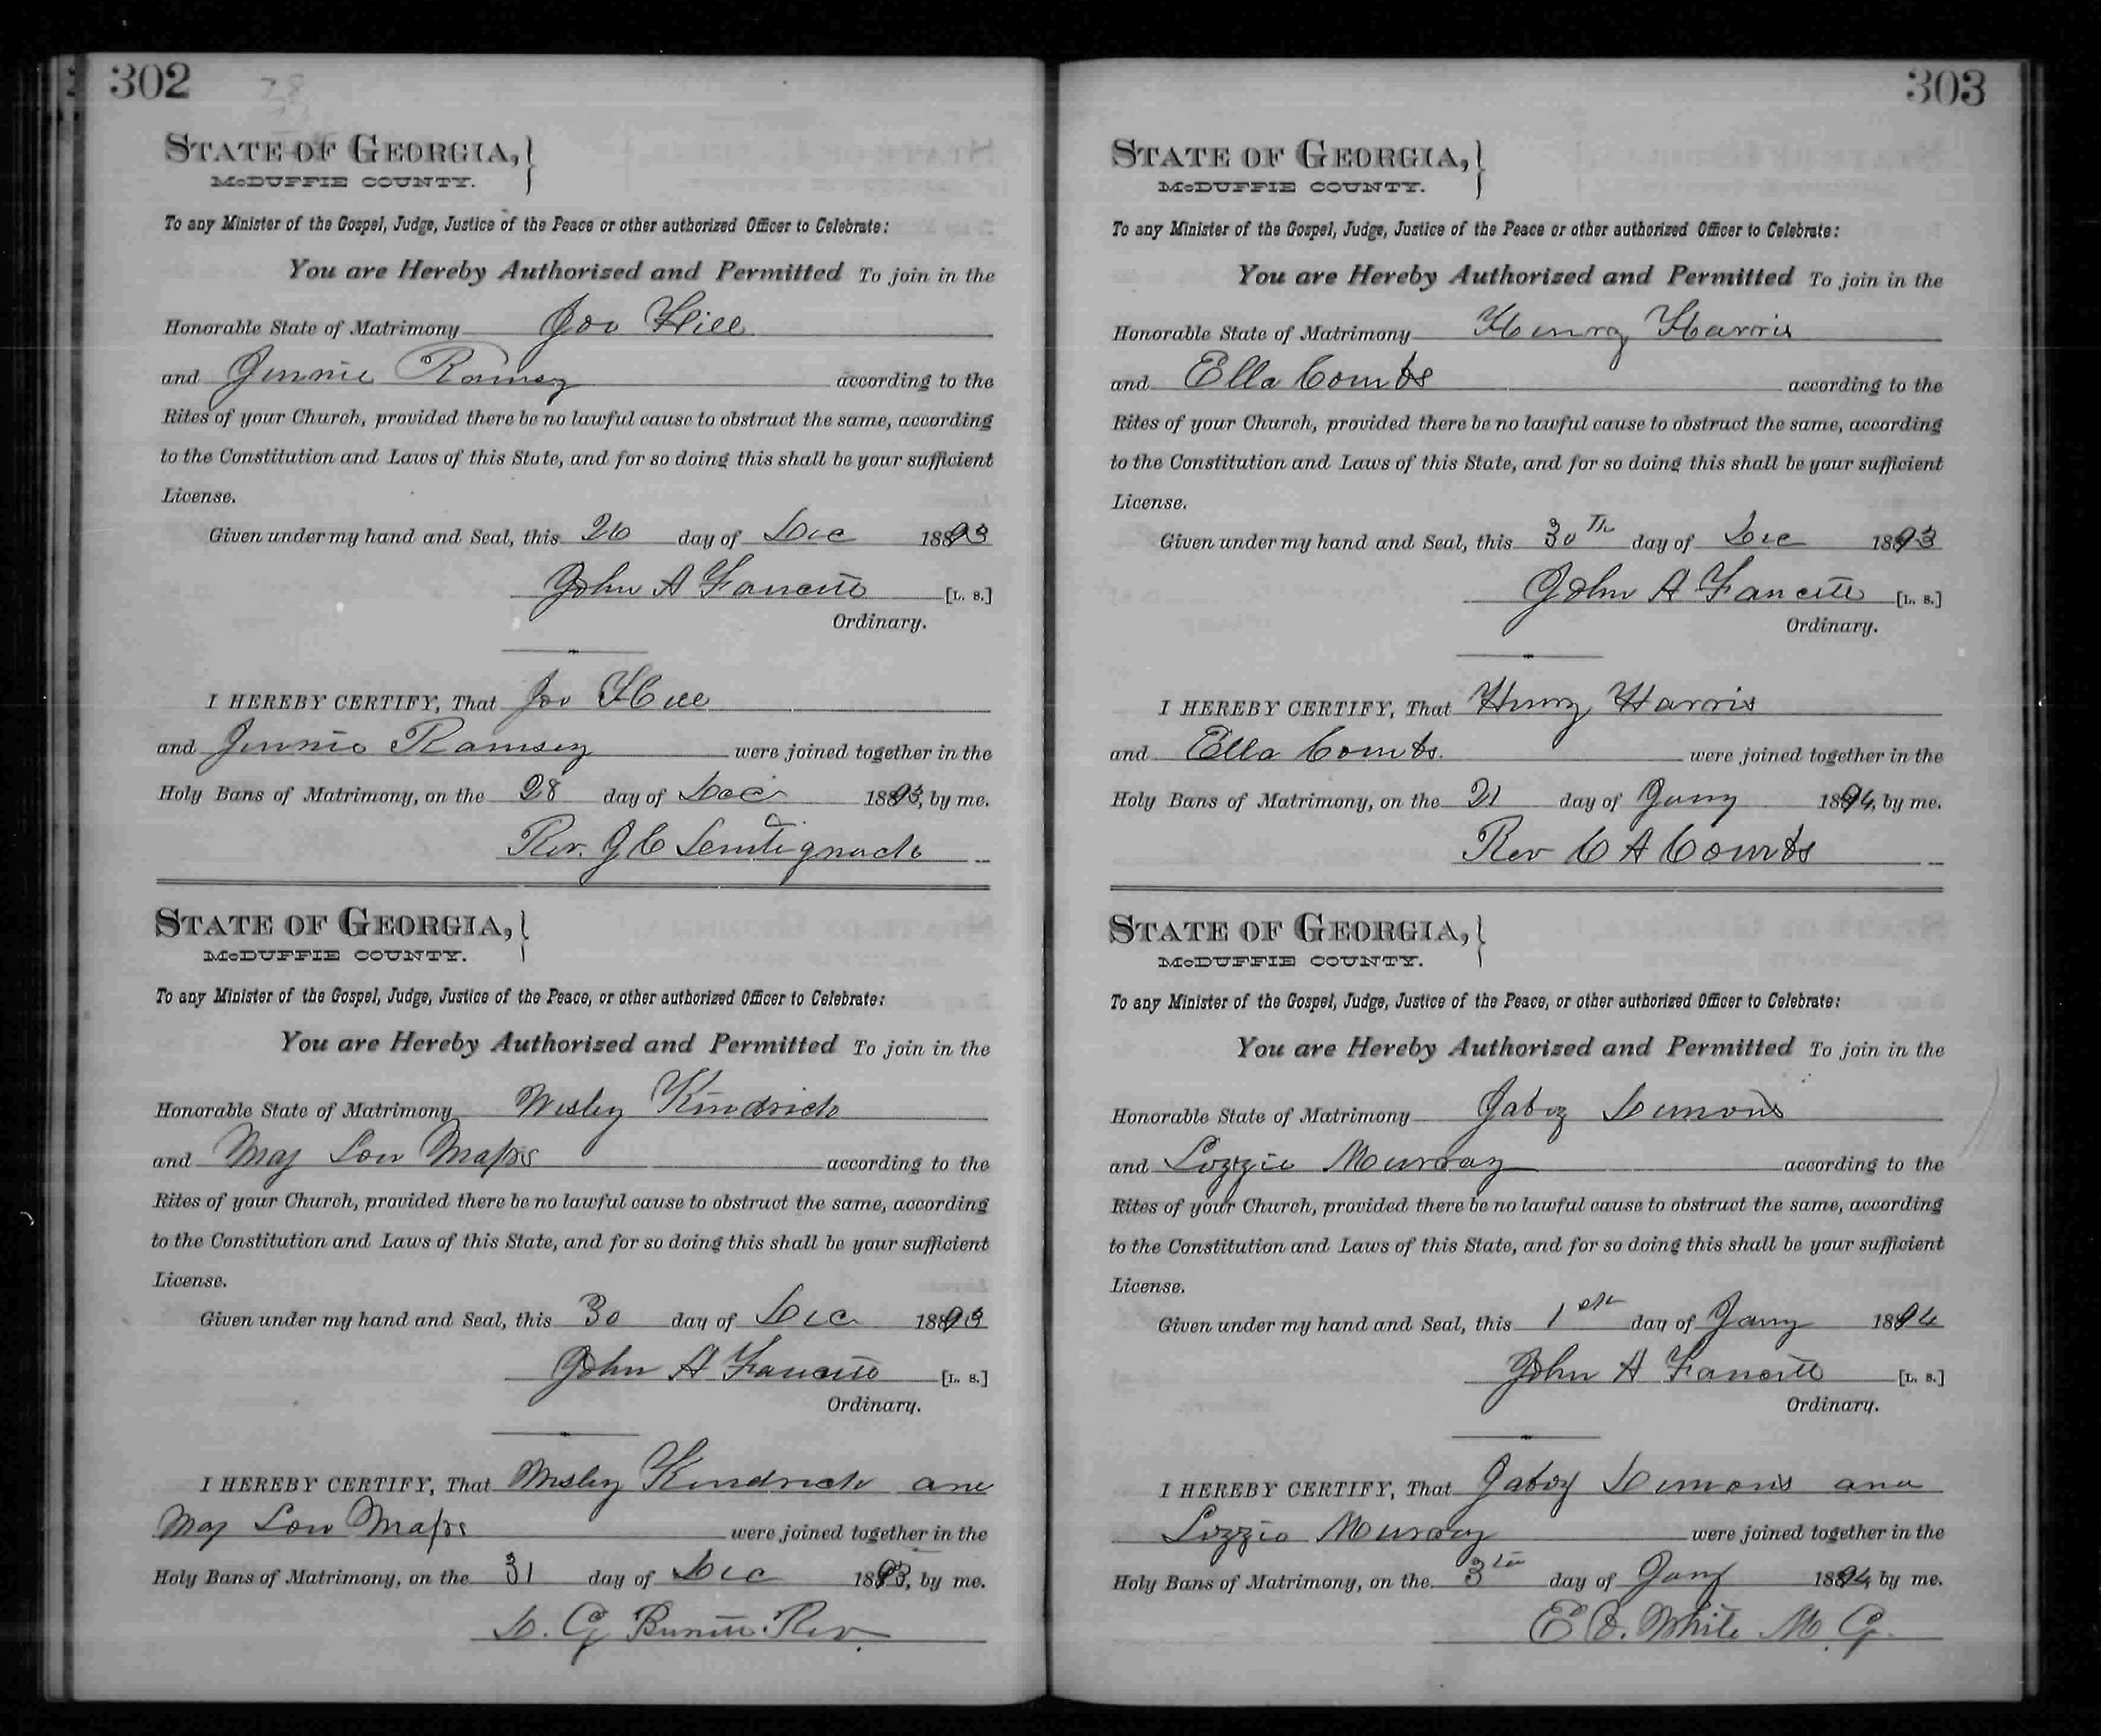 302
STATE OF GEORGIA,
McDUFFIE COUNTY.
To any Minister of the Gospel, Judge, Justice of the Peace or other authorized Officer to Celebrate:
You are Hereby Authorized and Permitted To join in the
Honorable State of Matrimony Joe Hill
and Jennie Ramsey according to the
Rites of your Church, provided there be no lawful cause to obstruct the same, according
to the Constitution and Laws of this State, and for so doing this shall be your sufficient
License.
Given under my hand and Seal, this 26 day of Dec 1893
John A [L. S.]
Ordinary.
I HEREBY CERTIFY, That Joe Hill
and Jennie Ramsey were joined together in the
Holy Bans of Matrimony, on the 28 day of Dec 1893, by me.
Rev. J C
STATE OF GEORGIA,
McDUFFIE COUNTY.
To any Minister of the Gospel, Judge, Justice of the Peace, or other authorized Officer to Celebrate:
You are Hereby Authorized and Permitted To join in the
Honorable State of Matrimony Wesley Kindrick
and May Lou Mapes according to the
Rites of your Church, provided there be no lawful cause to obstruct the same, according
to the Constitution and Laws of this State, and for so doing this shall be your sufficient
License.
Given under my hand and Seal, this 30 day of Dec 1893
John A [L. S.]
Ordinary.
I HEREBY CERTIFY, That Wesley Kendrick and
May Lou were joined together in the
Holy Bans of Matrimony, on the 31 day of Dec 1893, by me.
D. G Rev.
303
STATE OF GEORGIA,
McDUFFIE COUNTY.
To any Minister of the Gospel, Judge, Justice of the Peace or other authorized Officer to Celebrate:
You are Hereby Authorized and Permitted To join in the
Honorable State of Matrimony Henry Harris
and Ella Combs according to the
Rites of your Church, provided there be no lawful cause to obstruct the same, according
to the Constitution and Laws of this State, and for so doing this shall be your sufficient
License.
Given under my hand and Seal, this 30th day of Dec 1893
John A [L. S.]
Ordinary.
I HEREBY CERTIFY, That Henry Harris
and Ella Combs. were joined together in the
Holy Bans of Matrimony, on the 21 day of Jany 1894, by me.
Rev C A Combs
STATE OF GEORGIA,
McDUFFIE COUNTY.
To any Minister of the Gospel, Judge, Justice of the Peace, or other authorized Officer to Celebrate:
You are Hereby Authorized and Permitted To join in the
Honorable State of Matrimony Jabez
and Lizzie Murray according to the
Rites of your Church, provided there be no lawful cause to obstruct the same, according
to the Constitution and Laws of this State, and for so doing this shall be your sufficient
License.
Given under my hand and Seal, this 1 day of Jany 1894
John A [L. S.]
Ordinary.
I HEREBY CERTIFY, That Jabez and
Lizzie Murray were joined together in the
Holy Bans of Matrimony, on the 3 day of Jany 1894, by me.
E O. White M. G.